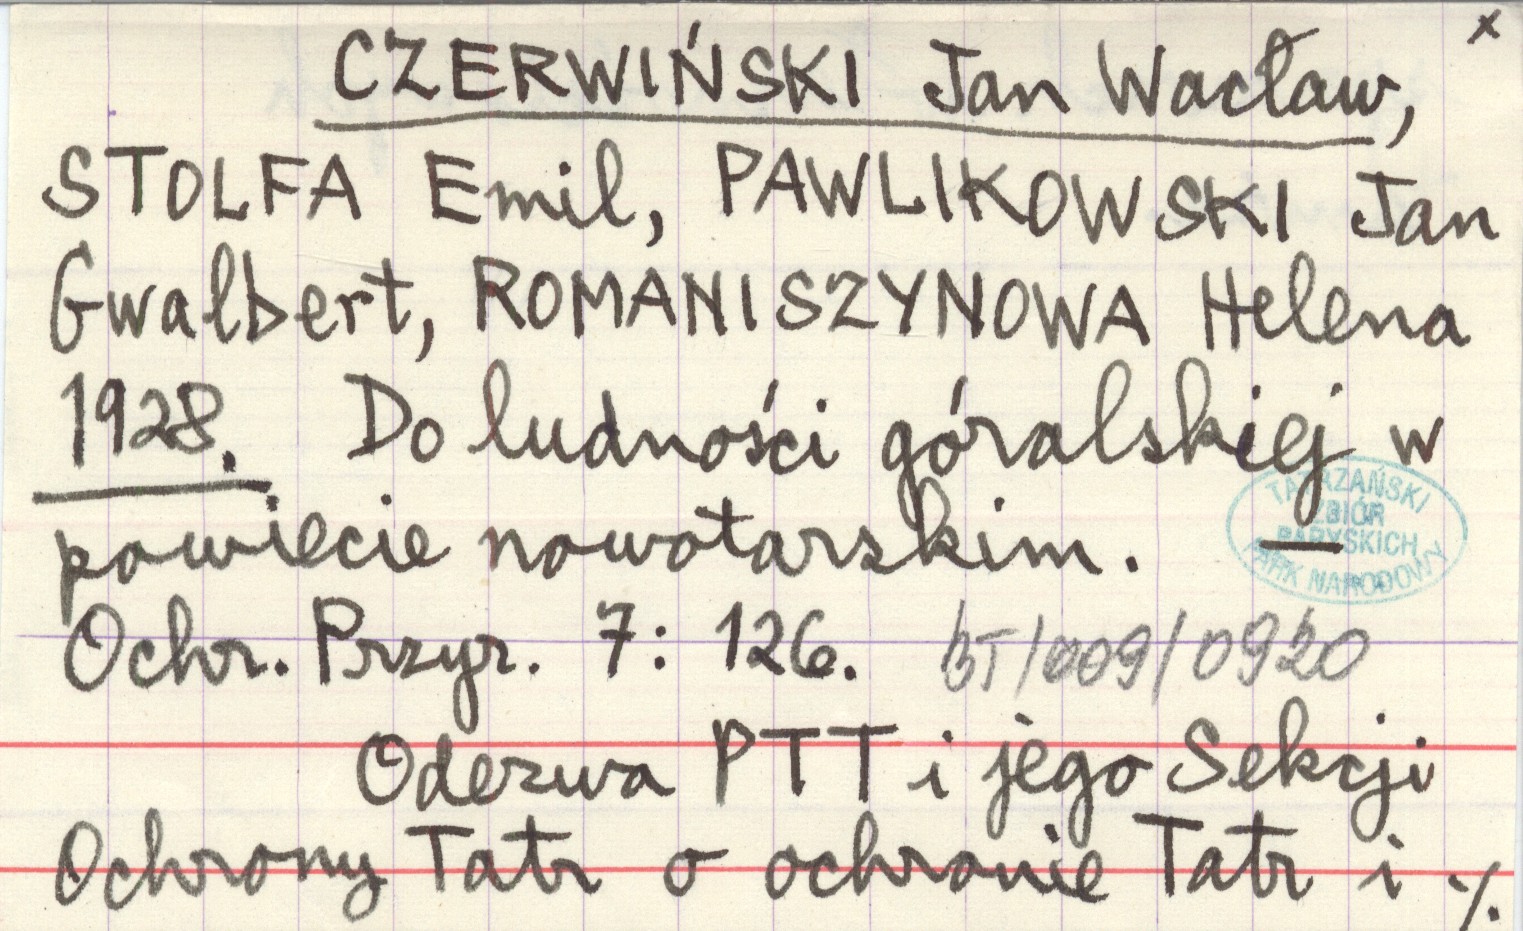 x
CZERWIŃSKI Jan Wacław,
STOLFA Emil, PAWLIKOWSKI Jan
Gwalbert, ROMANISZYNOWA Helena
1928. Do ludności góralskiej w
powiecie nowotarskim. —
TATRZAŃSKI
ZBIÓR
PARYSKICH
PARK NARODOWY
Ochr. Przyr. 7: 126. BT/009/0920
Odezwa PTT i jego Sekcji
Ochrony Tatr o ochronie Tatr i ./.